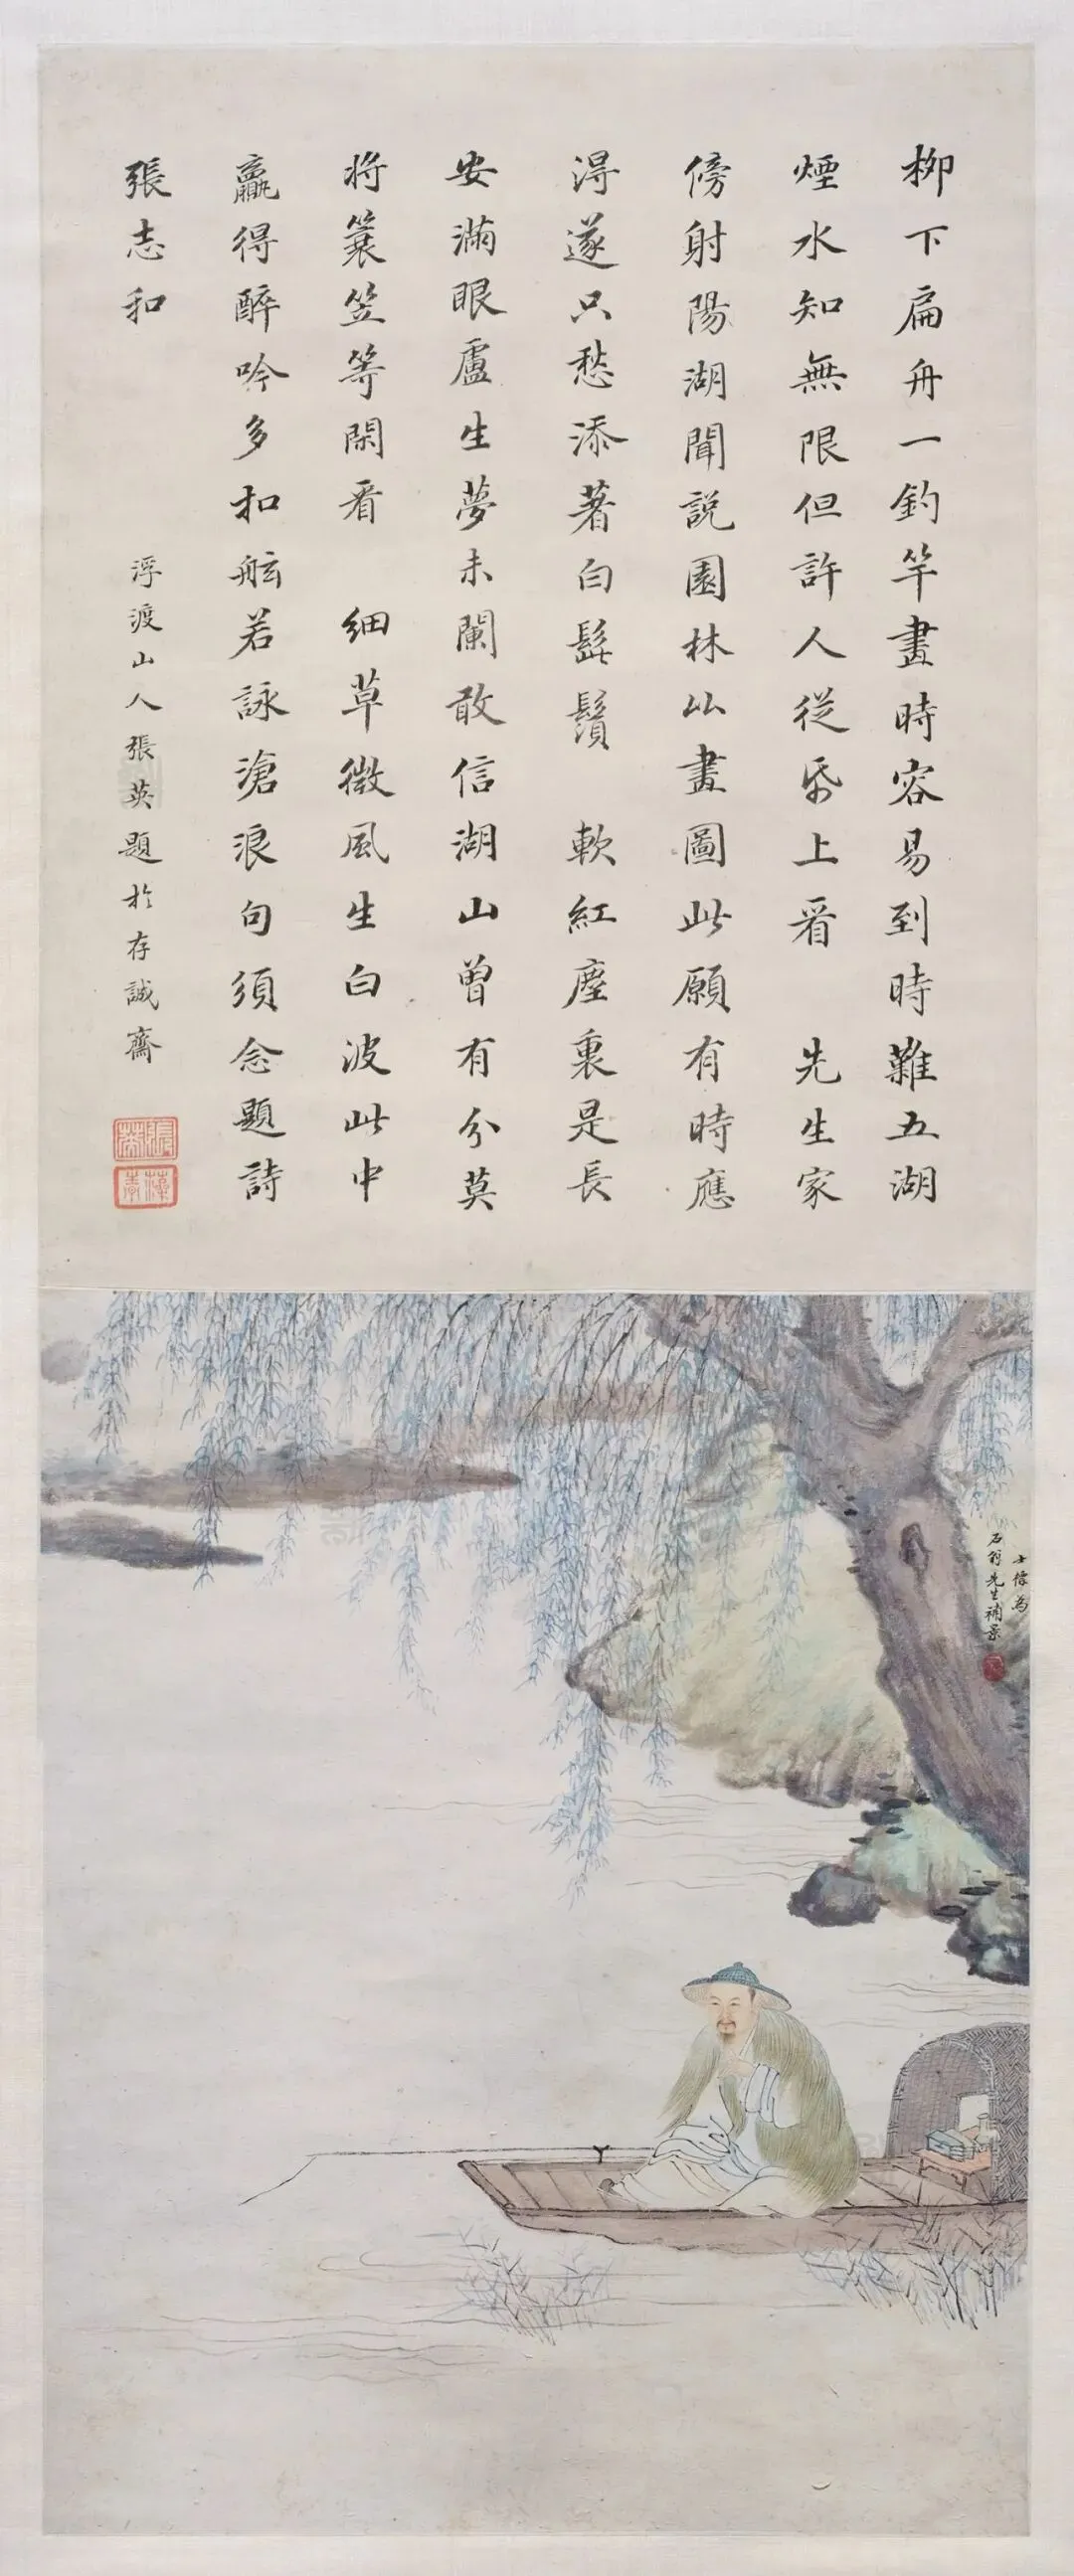 柳下扁舟一釣竿畫時容易到時難五湖
煙水知無限但許人從帋上看　先生家
傍射陽湖聞説園林似畫圖此願有時應
得遂只愁添著白髭鬚　軟紅塵裏是長
安滿眼盧生夢未闌敢信湖山曾有分莫
將簑笠等閑看　細草微風生白波此中
贏得醉吟多扣舷若詠滄浪句須念題詩
張志和
浮渡山人張英題於存誠齋
張英
士標為
石翁先生補景